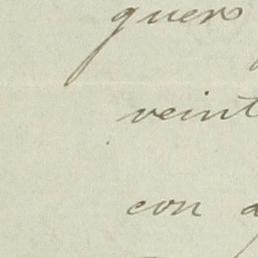 quero
veint
con